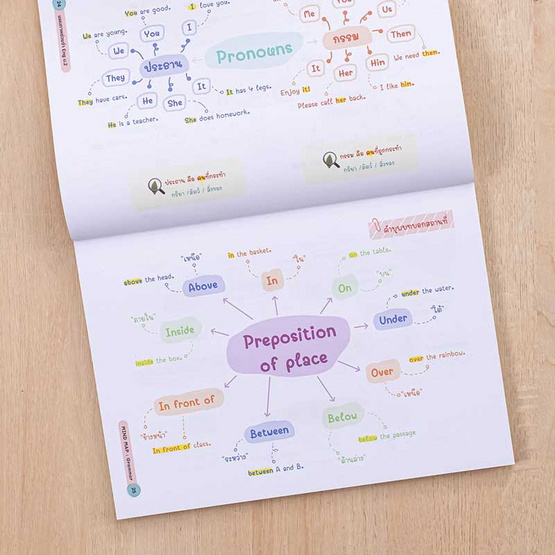 You are good.
I love you.
We are young.
You
I
Me
You
Us
We
Pronouns
กรรม
Then
ประธาน
They
It
Her
Him
We need them.
They have cars.
He
She
It
It has 4 legs.
Enjoy it!
I like him.
He is a teacher.
She does homework.
Please call her back.
ประธาน คือ คนที่กระทำ
กริยา / สัตว์ / สิ่งของ
กรรม คือ คนที่ถูกกระทำ
กริยา / สัตว์ / สิ่งของ
คำบุพบทบอกสถานที่
"เหนือ"
in the basket.
on the table.
above the head.
Above
In
"ใน"
On
"บน"
under the water.
"ภายใน"
Inside
Preposition
of place
Under
"ใต้"
inside the box.
Over
over the rainbow.
"เหนือ"
In front of
Below
"ข้างหน้า"
In front of class.
Between
below the passage
"ระหว่าง"
"ด้านล่าง"
between A and B.
MIND MAP : Grammar